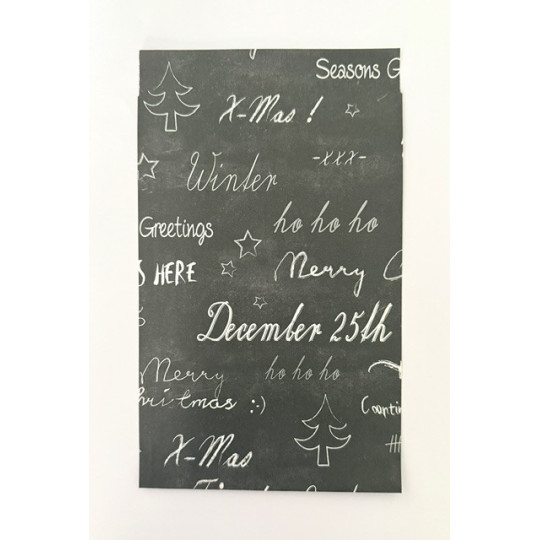 Seasons G
X-Mas !
-xxx-
Winter
ho ho ho
Greetings
S HERE
Merry C
December 25th
Merry
ho ho ho
hristmas :-)
Countin
X-Mas